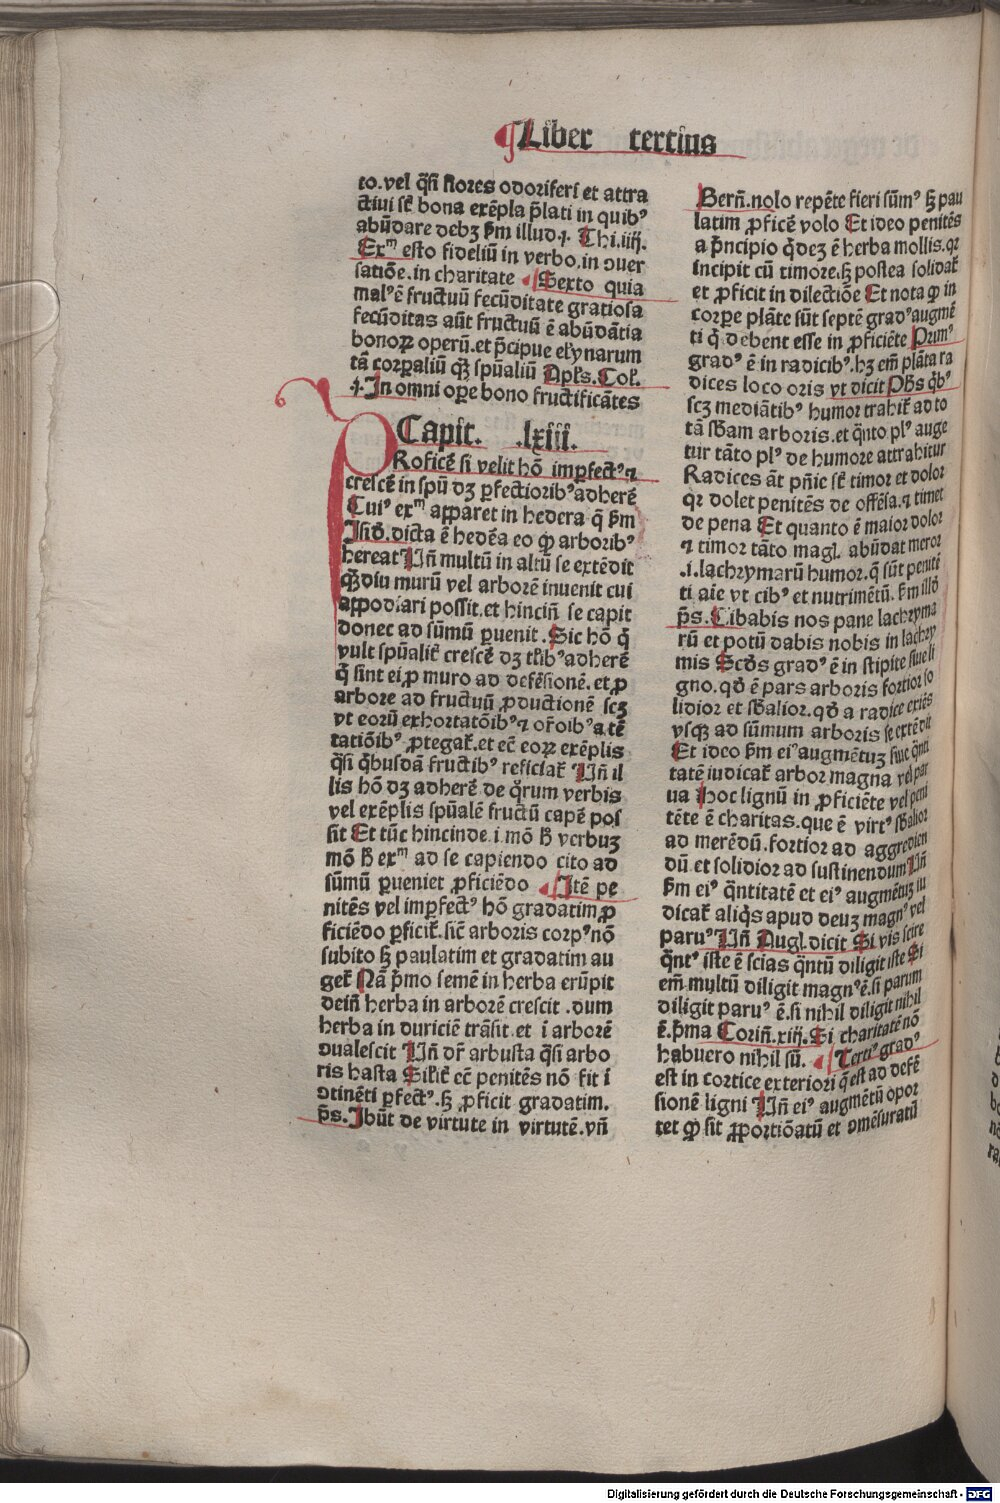 Liber tertius
to.vel q̃ſi flores odoriferi et attra
ctiui ſcꝫ bona exẽpla p̃lati in quibꝰ
abũdare debꝫ ẜm illud.j. Thi.iiij.
Exᵐ eſto fideliũ in verbo.in ↄuer
ſatiõe.in charitate Sexto quia
malꝰ ẽ fructuũ fecũditate gratioſa
fecũditas aũt fructuũ ẽ abũdãtia
bonoꝝ operũ.et p̃cipue elẏnarum
tã corꝑaliũ qꝫ̃ ſpũaliũ Apl̃s.Col̃.
.j.In omni oꝑe bono fructificãtes
Capit. .lxiii.
PRoficẽ ſi velit hõ imꝑfectꝰ ⁊
creſcẽ in ſpũ dꝫ ꝑfectioribꝰ adherẽ
Cuiꝰ exᵐ apparet in hedera q̃ ẜm
Iſid̃.dicta ẽ hedẽa eo ꝙ arboribꝰ
hereat Uñ multũ in altũ ſe extẽdit
qꝫ̃diu murũ vel arborẽ inuenit cui
appodiari poſſit.et hincīn ſe capit
donec ad ſũmũ ꝑuenit.Sic hõ q̃
vult ſpũalit̃ creſcẽ dꝫ tl̃ibꝰ adherẽ
q̃ ſint ei ꝓ muro ad defẽſionẽ.et ꝓ
arbore ad fructuũ ꝓductionẽ ſcꝫ
vt eorũ exhortatõibꝰ ⁊ or̃oibꝰ a tẽ
tatiõibꝰ ꝓtegat̃.et ec̃ eoꝝ exẽplis
q̃ſi q̃buſdã fructibꝰ reficiat̃ Uñ il
lis hõ dꝫ adherẽ de q̃rum verbis
vel exẽplis ſpũalẽ fructũ capẽ poſ
ſit Et tũc hincinde.i.mõ ꝑ verbuꝫ
mõ ꝑ exᵐ ad ſe capiendo cito ad
ſũmũ ꝑueniet ꝓficiẽdo Itẽ pe
nitẽs vel imꝑfectꝰ hõ gradatim ꝓ
ficiẽdo ꝑficit̃.ſic̃ arboris corpꝰ nõ
ſubito ſꝫ paulatim et gradatim au
get̃ Nã p̃mo ſemẽ in herba erũpit
dein̄ herba in arborẽ creſcit.dum
herba in duriciẽ trãſit.et ĩ arborẽ
ↄualeſcit Uñ dr̃ arbuſta q̃ſi arbo
ris haſta Sil̃it̃ ec̃ penitẽs nõ fit ĩ
ↄtinẽti ꝑfectꝰ.ſꝫ ꝓficit gradatim.
p̃s.Ibũt de virtute in virtutẽ.vñ
Berñ.nolo repẽte fieri ſũmꝰ ſꝫ pau
latim ꝓficẽ volo Et ideo penitẽs
a p̃ncipio q̃deꝫ ẽ herba mollis.qꝛ
incipit cũ timore.ſꝫ poſtea ſolidat̃
et ꝓficit in dilectiõe Et nota ꝙ in
corꝑe plãte ſũt ſeptẽ gradꝰ augmẽ
ti q̃ debent eſſe in ꝓficiẽte Primꝰ
gradꝰ ẽ in radicibꝰ.hꝫ em̃ plãta ra
dices loco oris vt dicit Ph̃s q̃bꝰ
ſcꝫ mediãtibꝰ humor trahit̃ ad to
tã ſb̃am arboris.et q̃nto plꝰ auge
tur tãto plꝰ de humore attrahitur
Radices ãt pñie ſcꝫ timor et dolor
qꝛ dolet penitẽs de offẽſa.⁊ timet
de pena Et quanto ẽ maior dolor
⁊ timor tãto magĩ. abũdat meror
.i.lachrymarũ humor.q̃ ſũt penitẽ
ti aĩe vt cibꝰ et nutrimẽtũ.ẜm illd̃
p̃s.Cibabis nos pane lachryma
rũ et potũ dabis nobis in lachry
mis Scd̃s gradꝰ ẽ in ſtipite ſiue li
gno.qd̃ ẽ pars arboris fortior ſo
lidior et ſb̃alior.qd̃ a radice exiẽs
vſqꝫ ad ſũmum arboris ſe extẽdit
Et ideo ẜm eiꝰ augmẽtuꝫ ſiue q̃nti
tatẽ iudicat̃ arbor magna vel par
ua Hoc lignũ in ꝓficiẽte vel peni
tẽte ẽ charitas.que ẽ virtꝰ ſb̃alior
ad merẽdũ.fortior ad aggredien
dũ et ſolidior ad ſuſtinendum Uñ
ẜm eiꝰ q̃ntitatẽ et eiꝰ augmẽtuꝫ iu
dicat̃ aliq̃s apud deuꝫ magnꝰ vel
paruꝰ Uñ Augĩ.dicit Si vis ſcire
q̃ntꝰ iſte ẽ ſcias q̃ntũ diligit iſte Si
em̃ multũ diligit magnꝰ ẽ.ſi parum
diligit paruꝰ ẽ.ſi nihil diligit nihil
ẽ.p̃ma Coriñ.xiij.Si charitatẽ nõ
habuero nihil ſũ. Tertiꝰ gradꝰ
eſt in cortice exteriori q̃ eſt ad defẽ
ſionẽ ligni Uñ eiꝰ augmẽtũ opor
tet ꝙ ſit ꝓportiõatũ et ↄmẽſuratũ
Digitalisierung gefördert durch die Deutsche Forschungsgemeinschaft - DFG